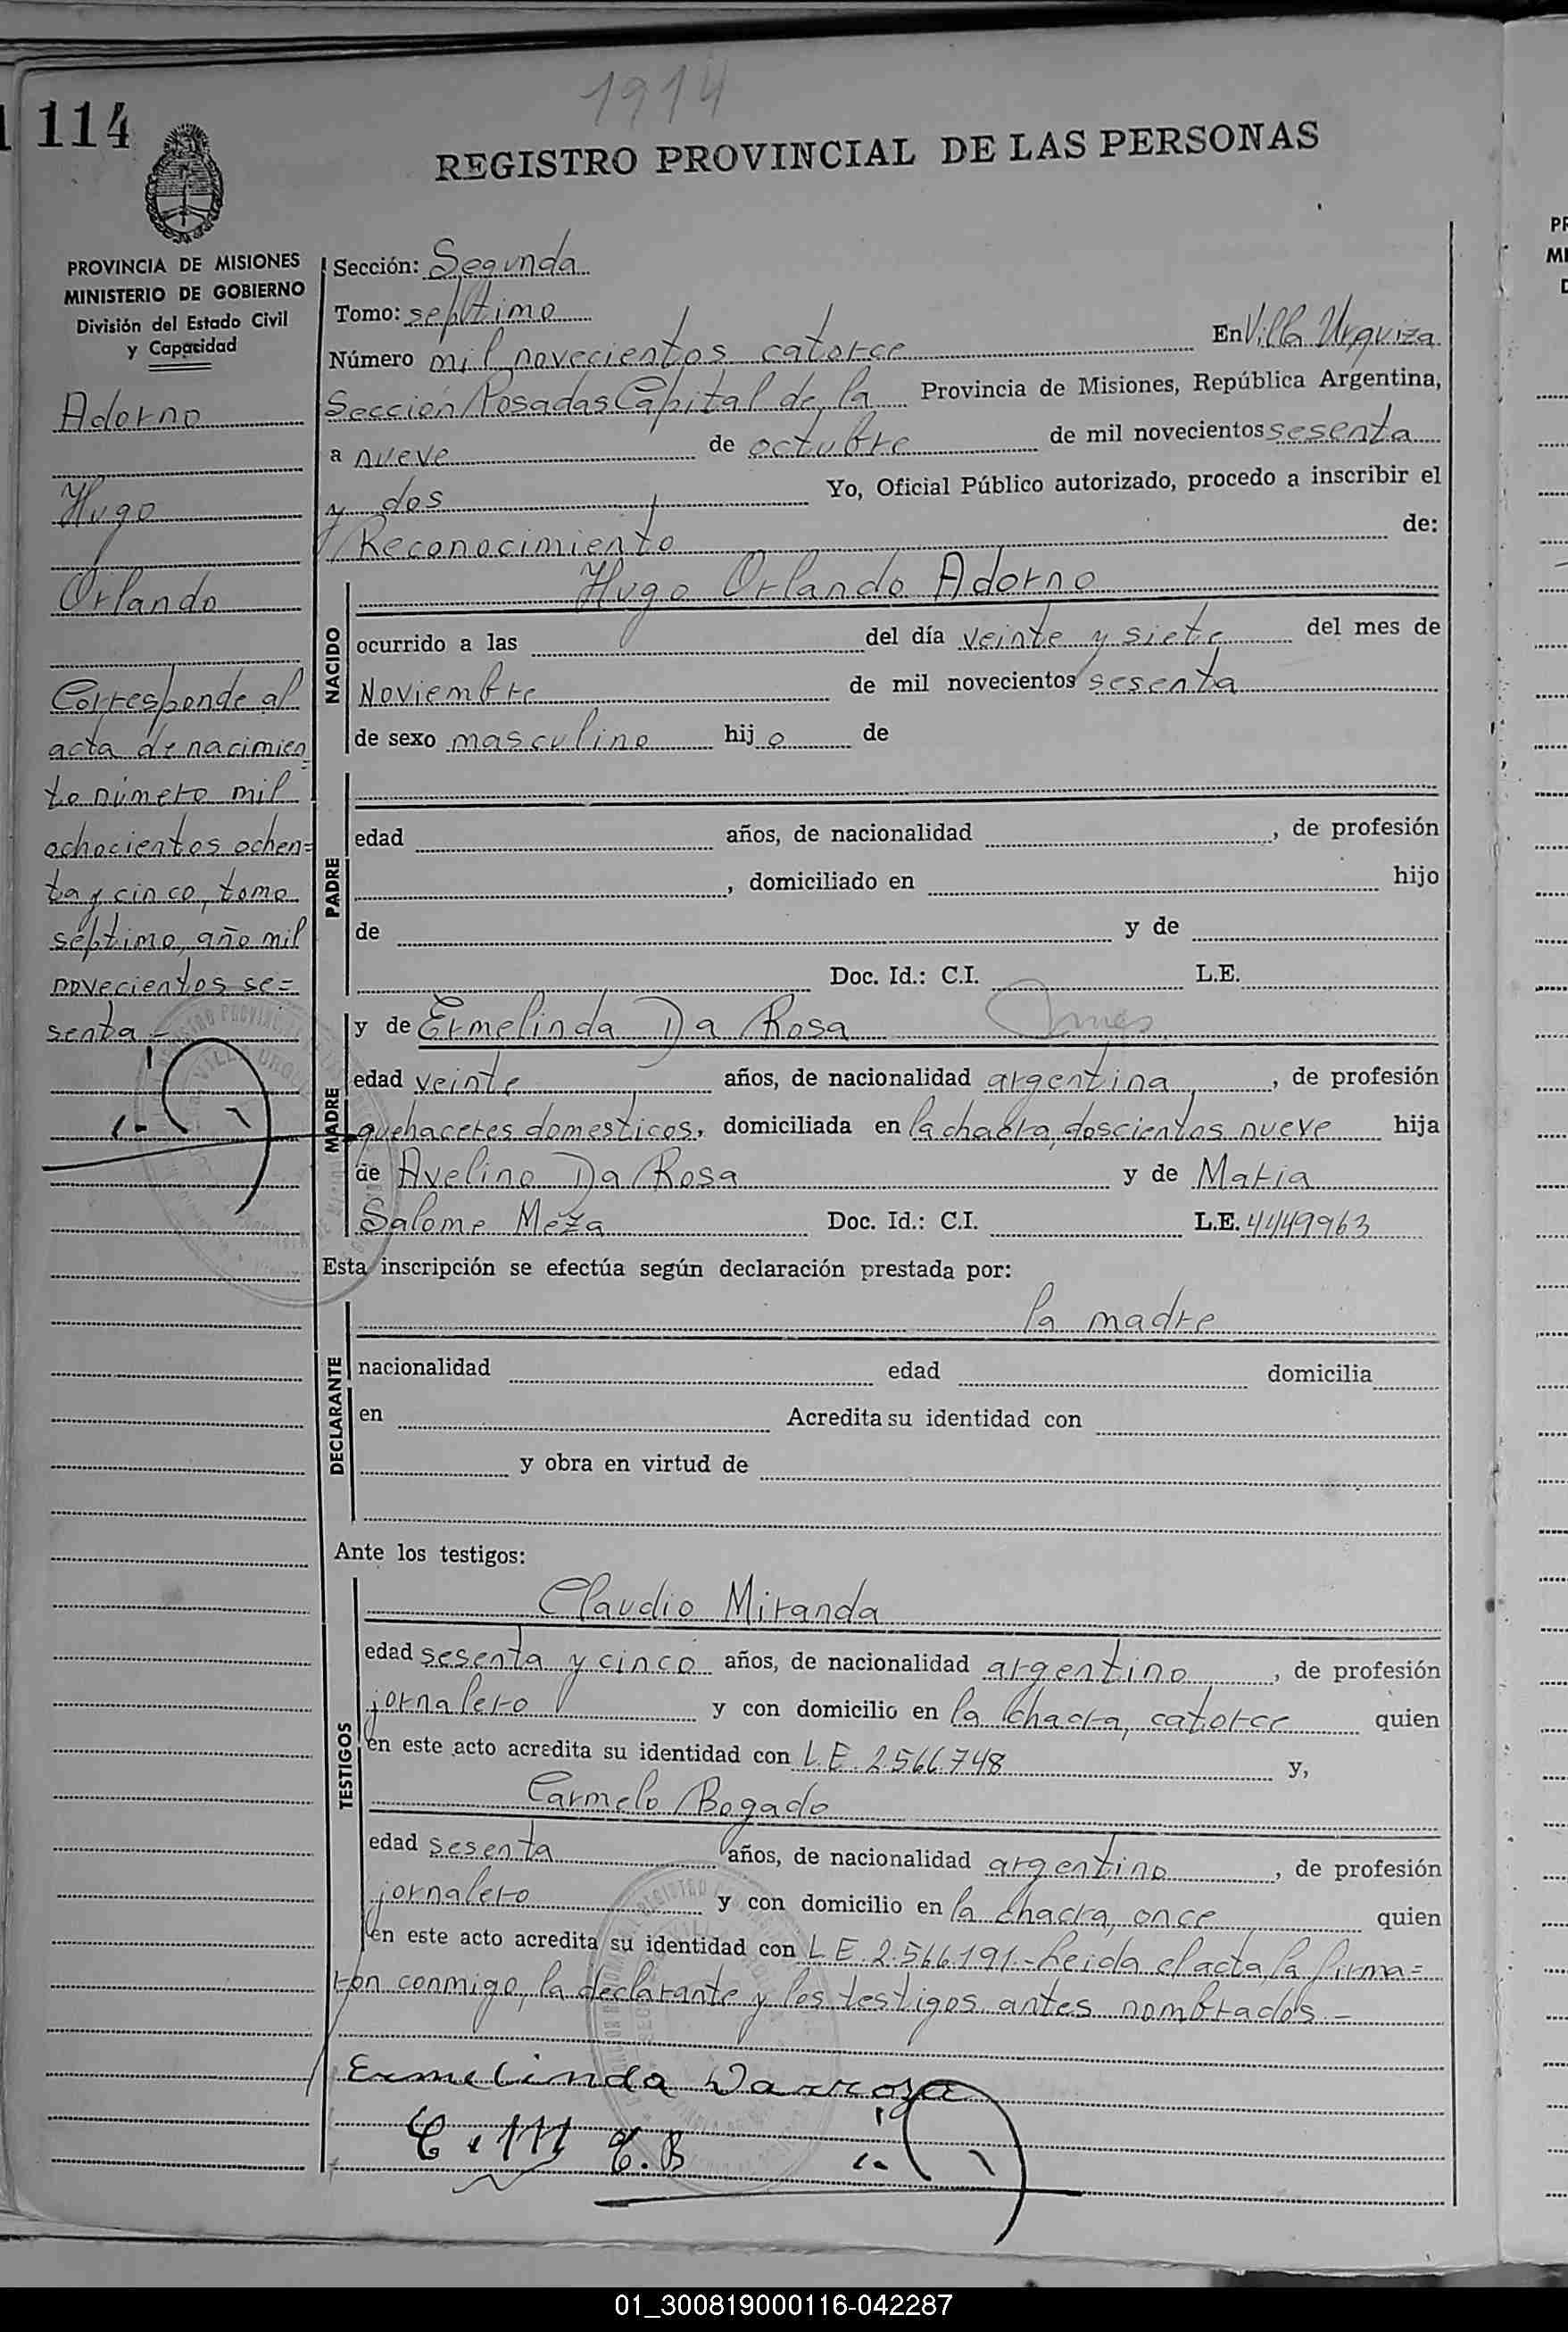 1914
114
REGISTRO PROVINCIAL DE LAS PERSONAS
PROVINCIA DE MISIONES
MINISTERIO DE GOBIERNO
División del Estado Civil
y Capacidad
Adorno
Hugo
Orlando
Corresponde al
acta de nacimien
to número mil
ochocientos ochen=
ta y cinco, tomo
séptimo, año mil
novecientos se=
senta.-
Sección: Segunda
Tomo: séptimo
Número mil novecientos catorce En Villa Urquiza
Sección Posadas Capital de la Provincia de Misiones, República Argentina,
a nueve de octubre de mil novecientos sesenta
y dos Yo, Oficial Público autorizado, procedo a inscribir el
Reconocimiento de:
NACIDO
Hugo Orlando Adorno
ocurrido a las del día veinte y siete del mes de
Noviembre de mil novecientos sesenta
de sexo masculino hijo de
PADRE
edad años, de nacionalidad , de profesión
, domiciliado en hijo
de y de
Doc. Id.: C.I. L.E.
MADRE
y de Ermelinda Da Rosa
edad veinte años, de nacionalidad argentina, de profesión
quehaceres domesticos, domiciliada en la chacra, doscientos nueve hija
de Avelino Da Rosa y de Maria
Salome Meza Doc. Id.: C.I. L.E. 4449963
Esta inscripción se efectúa según declaración prestada por:
DECLARANTE
la madre
nacionalidad edad domicilia
en Acredita su identidad con
y obra en virtud de
Ante los testigos:
TESTIGOS
Claudio Miranda
edad sesenta y cinco años, de nacionalidad argentino, de profesión
jornalero y con domicilio en la chacra, catorce quien
en este acto acredita su identidad con L.E. 2.566.748 y,
Carmelo Bogado
edad sesenta años, de nacionalidad argentino, de profesión
jornalero y con domicilio en la chacra, once quien
en este acto acredita su identidad con L.E. 2.566.191.- Leida el acta, la firma=
ron conmigo, la declarante y los testigos antes nombrados.-
Ermelinda Darroza
C. M C. B
01_300819000116-042287